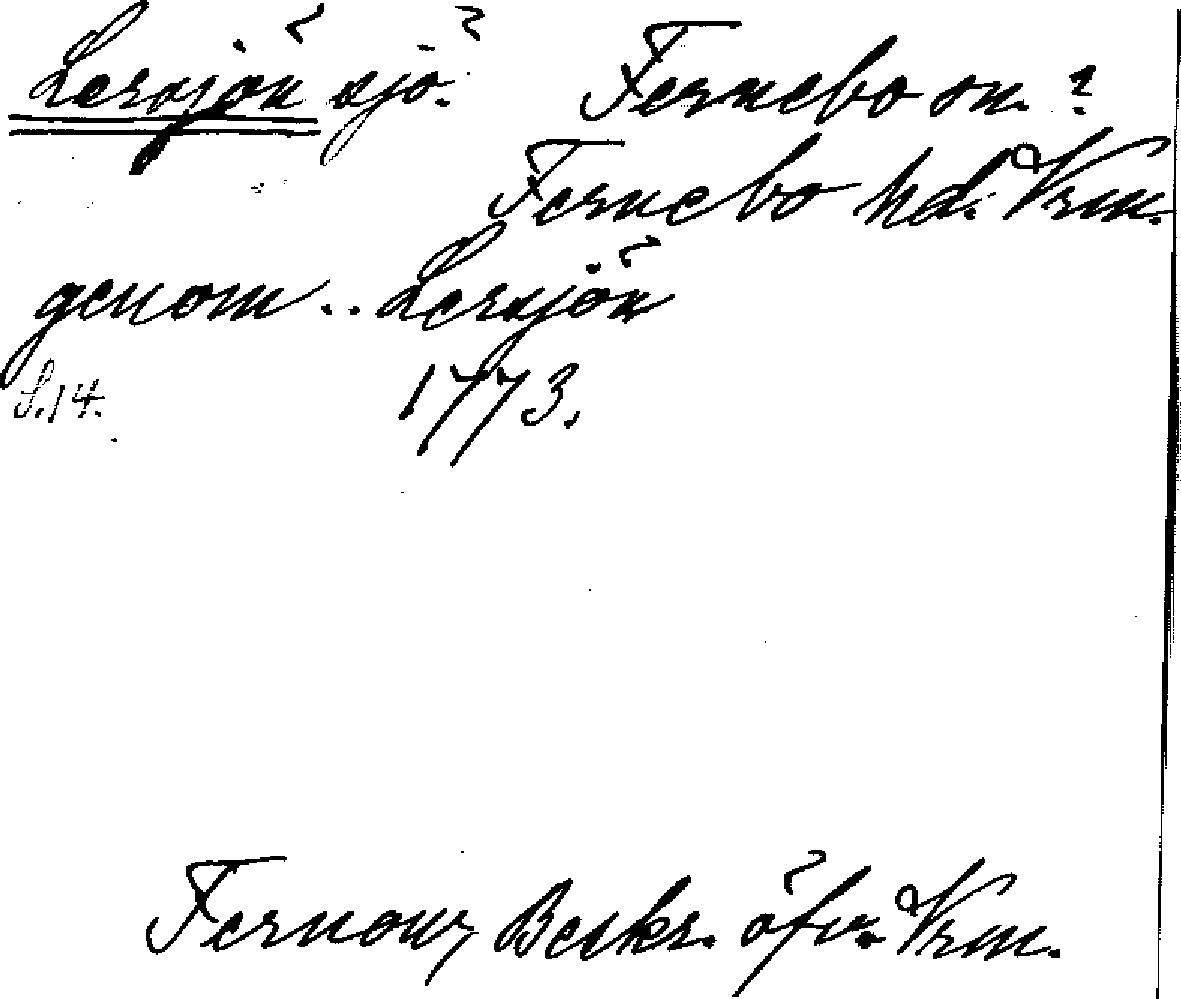 Lersjön sjö. Fernebo sn. ?
Fernebo hd. Vrm.
genom .. Lersjön
S. 14. 1773.
Fernow, Beskr. öfv. Vrm.